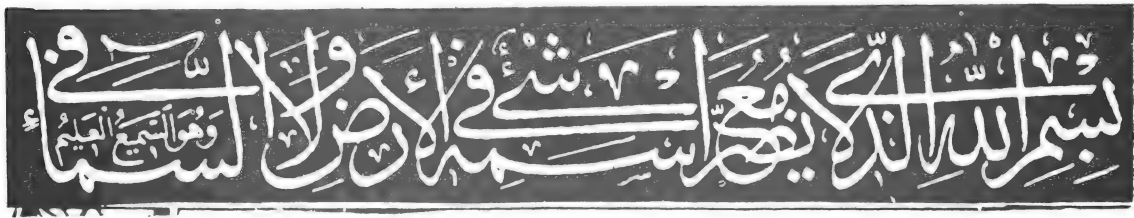 بسم الله الذي لا يضر مع اسمه شئ في الأرض ولا في السماء وهو السميع العليم